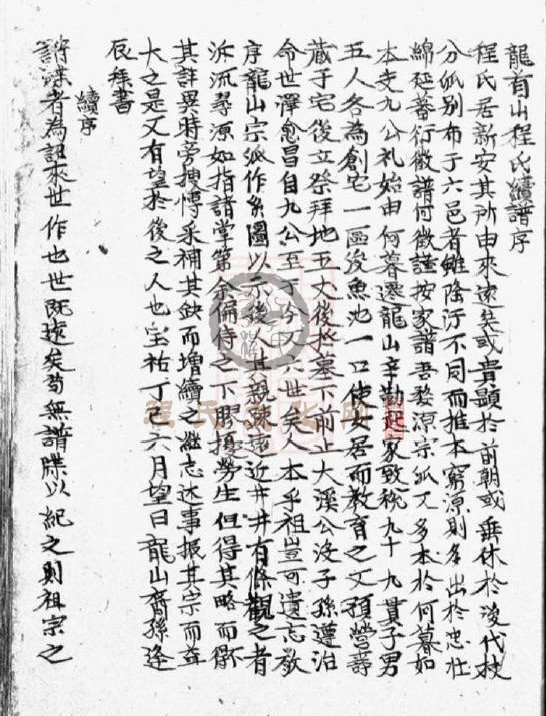 龍首山程氏續譜序
程氏居新安其所由來遠矣或貴顯於前朝或垂休於後代枝
分派別布于六邑者雖隆汙不同而推本窮源則多出於忠壯
綿延蕃衍微譜何徵謹按家譜吾婺源宗派又多本於何暮如
本支九公礼始由何暮遷龍山辛勤起家致税九十九貫子男
五人各為創宅一區浚魚池一口使安居而教育之又預營壽
藏于宅後立祭拜地五丈後於墓下前止大溪公沒子孫遵治
命世澤愈昌自九公至于今又六世矣人本乎祖豈可遺忘敬
序龍山宗派作系圖以示後人其親疎遠近井井有條觀之者
泝流尋源如指諸掌第余偏侍之下膠擾勞生但得其略而
其詳異時旁搜博采補其缺而增續之繼志述事振其宗而益
大之是又有望於後之人也宝祐丁巳六月望日龍山裔孫逢
辰拜書
續序
譜牒者為詔來世作也世既遠矣苟無譜牒以紀之則祖宗之